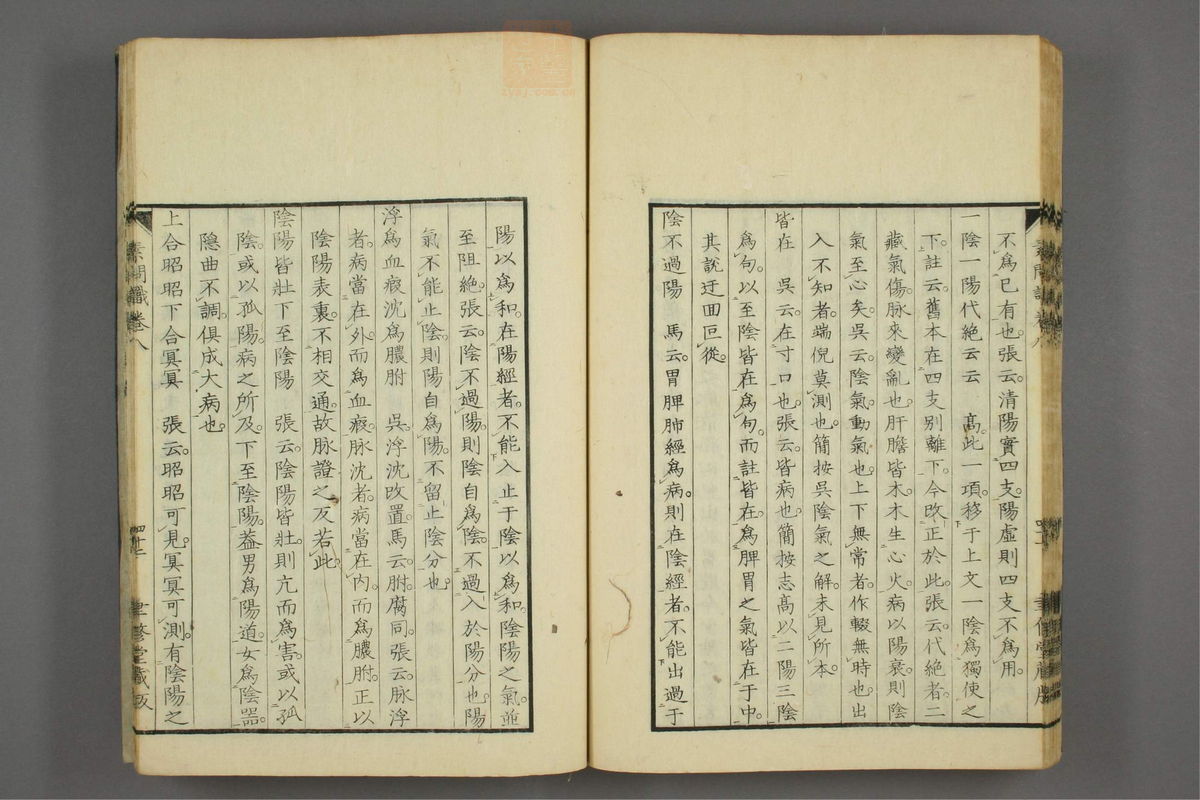 不爲已有也張云清陽實四支陽虛則四支不爲用
一陰一陽代絕云云 高此一項移于上文一陰爲獨使之
下註云舊本在四支別離下今改正於此張云代絕者二
藏氣傷脉來變亂也肝膽皆木木生心火病以陽衰則陰
氣至心矣吳云陰氣動氣也上下無常者作輟無時也出
入不知者端倪莫測也簡按吳陰氣之解未見所本
皆在 吳云在寸口也張云皆病也簡按志高以二陽三陰
爲句以至陰皆在爲句而註皆在爲脾胃之氣皆在于中
其說迂回叵從
陰不過陽 馬云胃脾肺經爲病則在陰經者不能出過于
陽以爲和在陽經者不能入止于陰以爲和陰陽之氣並
至阻絕張云陰不過陽則陰自爲陰不過入於陽分也陽
氣不能止陰則陽自爲陽不留止陰分也
浮爲血瘕沈爲膿胕 吳浮沈改置馬云胕腐同張云脉浮
者病當在外而爲血瘕脉沈者病當在內而爲膿胕正以
陰陽表裏不相交通故脉證之反若此
陰陽皆壯下至陰陽 張云陰陽皆壯則亢而爲害或以孤
陰或以孤陽病之所及下至陰陽蓋男爲陽道女爲陰器
隱曲不調俱成大病也
上合昭昭下合冥冥 張云昭昭可見冥冥可測有陰陽之
素問識卷八
四十二
聿修堂藏版